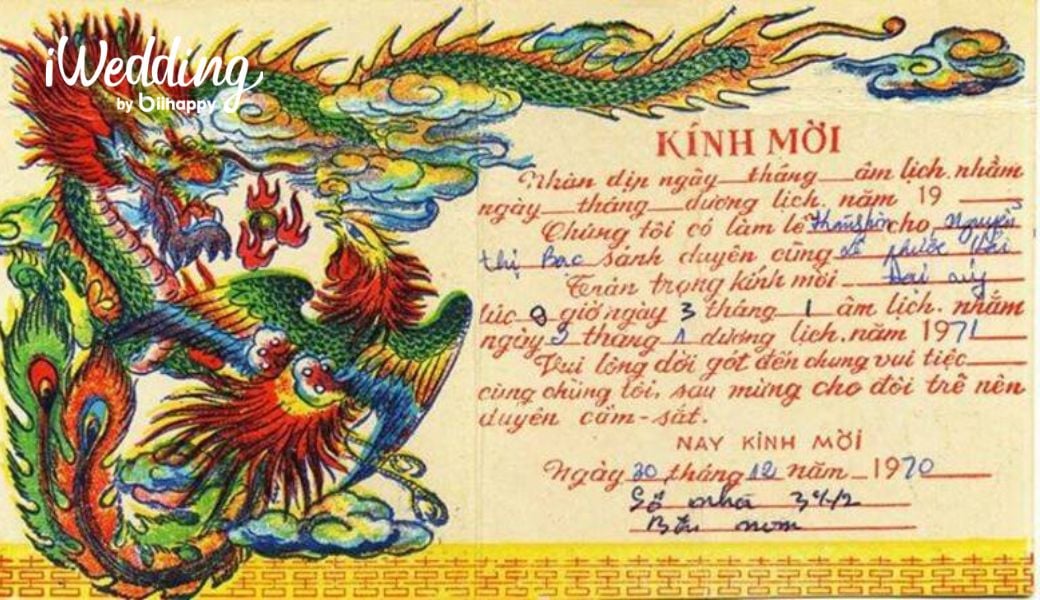 iWedding
by bihappy
KÍNH MỜI
Nhân dịp ngày tháng âm lịch. nhằm
ngày tháng dương lịch. năm 19
Chúng tôi có làm lễ cho Nguyễn
thị Bạc sánh duyên cùng Lê phước
Trân trọng kính mời Đại úy
lúc 9 giờ ngày 3 tháng 1 âm lịch. nhằm
ngày 3 tháng 1 dương lịch. năm 1971
Vui lòng dời gót đến chung vui tiệc
cùng chúng tôi, sau mừng cho đôi trẻ nên
duyên cầm-sắt.
NAY KÍNH MỜI
Ngày 30 tháng 12 năm 1970
Số nhà